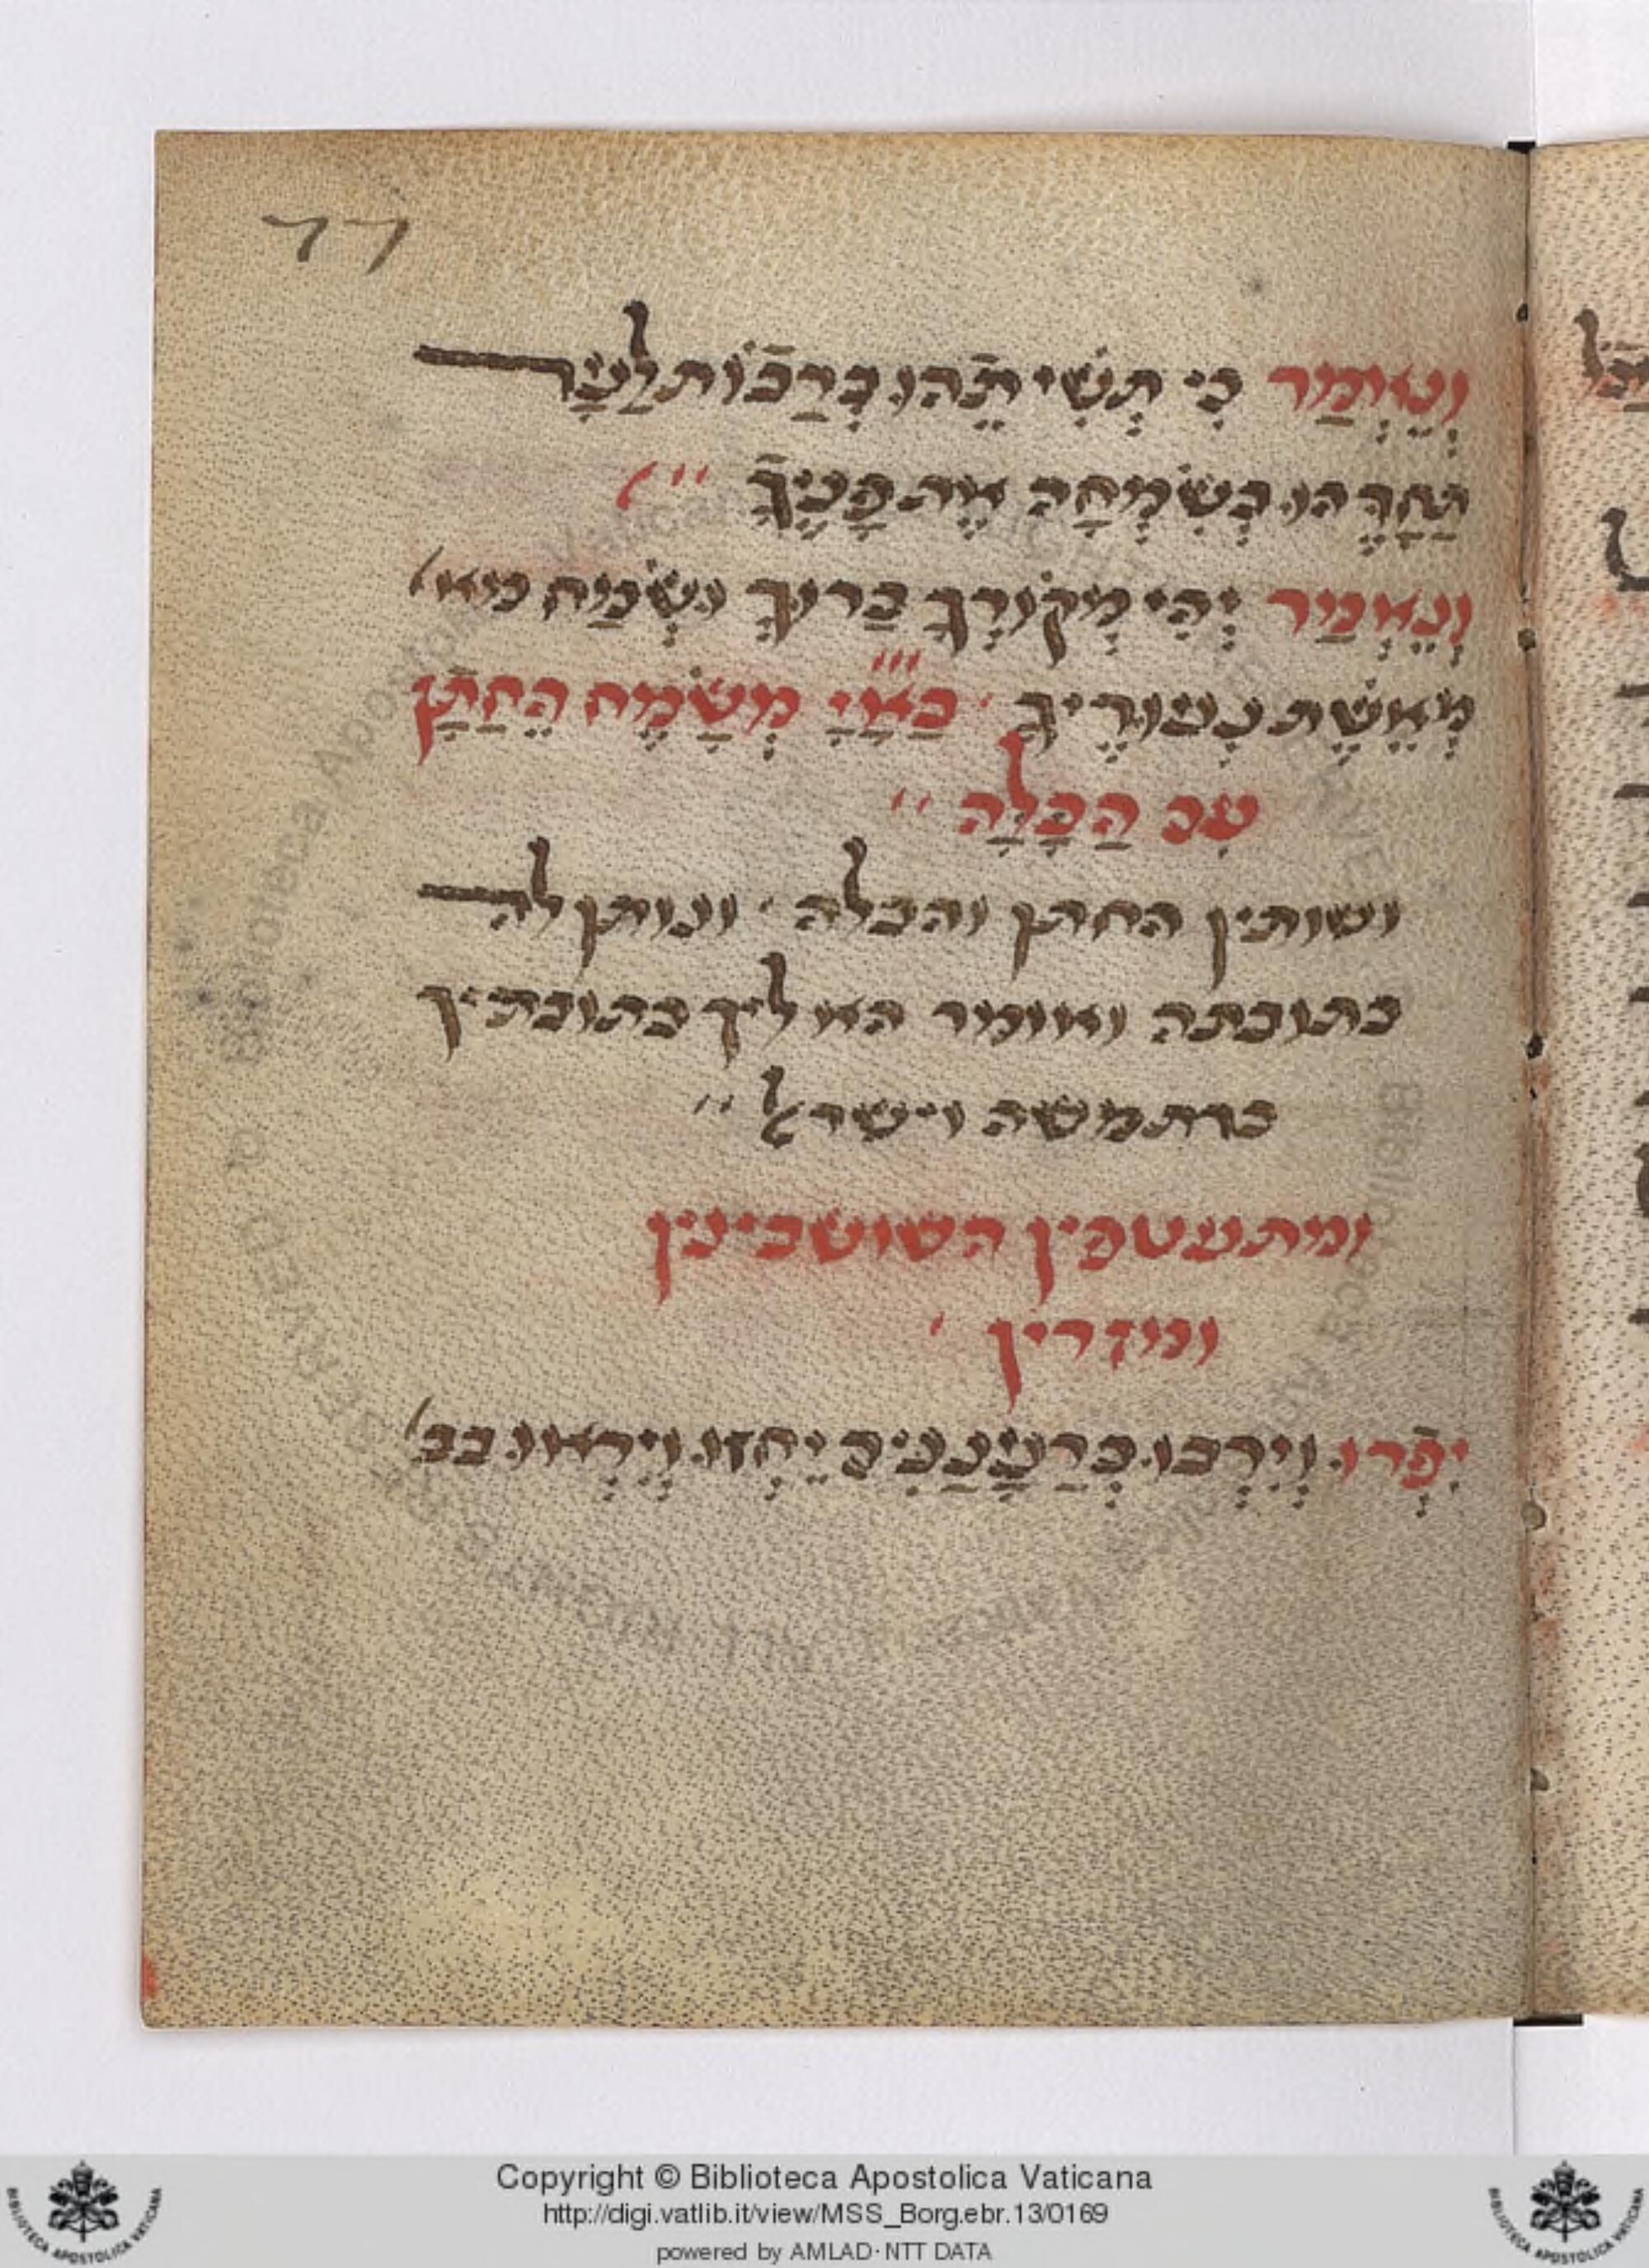 77
וְנֵאְמַר כִי תְשִׁיתֵהוּ בְרַכֿוֹת לַעַד
תְּחַדֵהוּ בְשִׂמְחָה אֶת פָנֶיךָ
וְנֵאְמַר יְהִי מְקוֹרְךָ בַרוּךְ וּשְׂמַח
מֵאֵשֶׁת נְעוּרֶיךָ בַאֲ̇יָ̇ מְשַׂמֵחַ הֶחָתָן
עִם הַכַלָה
ושותין החתן והכלה ונותן לה
כתובתה ואומר הא ליך כתובתיך
כדת משה וישראל
ומתעטפין השושבינין
ומזדרין
יִפְרוּ וְיִרְבוּ כְרַעֲנַנִים יֵחְזוּ וְיִרְאוּ בב
Copyright © Biblioteca Apostolica Vaticana
http://digi.vatlib.it/view/MSS_Borg.ebr.13/0169
powered by AMLAD·NTT DATA